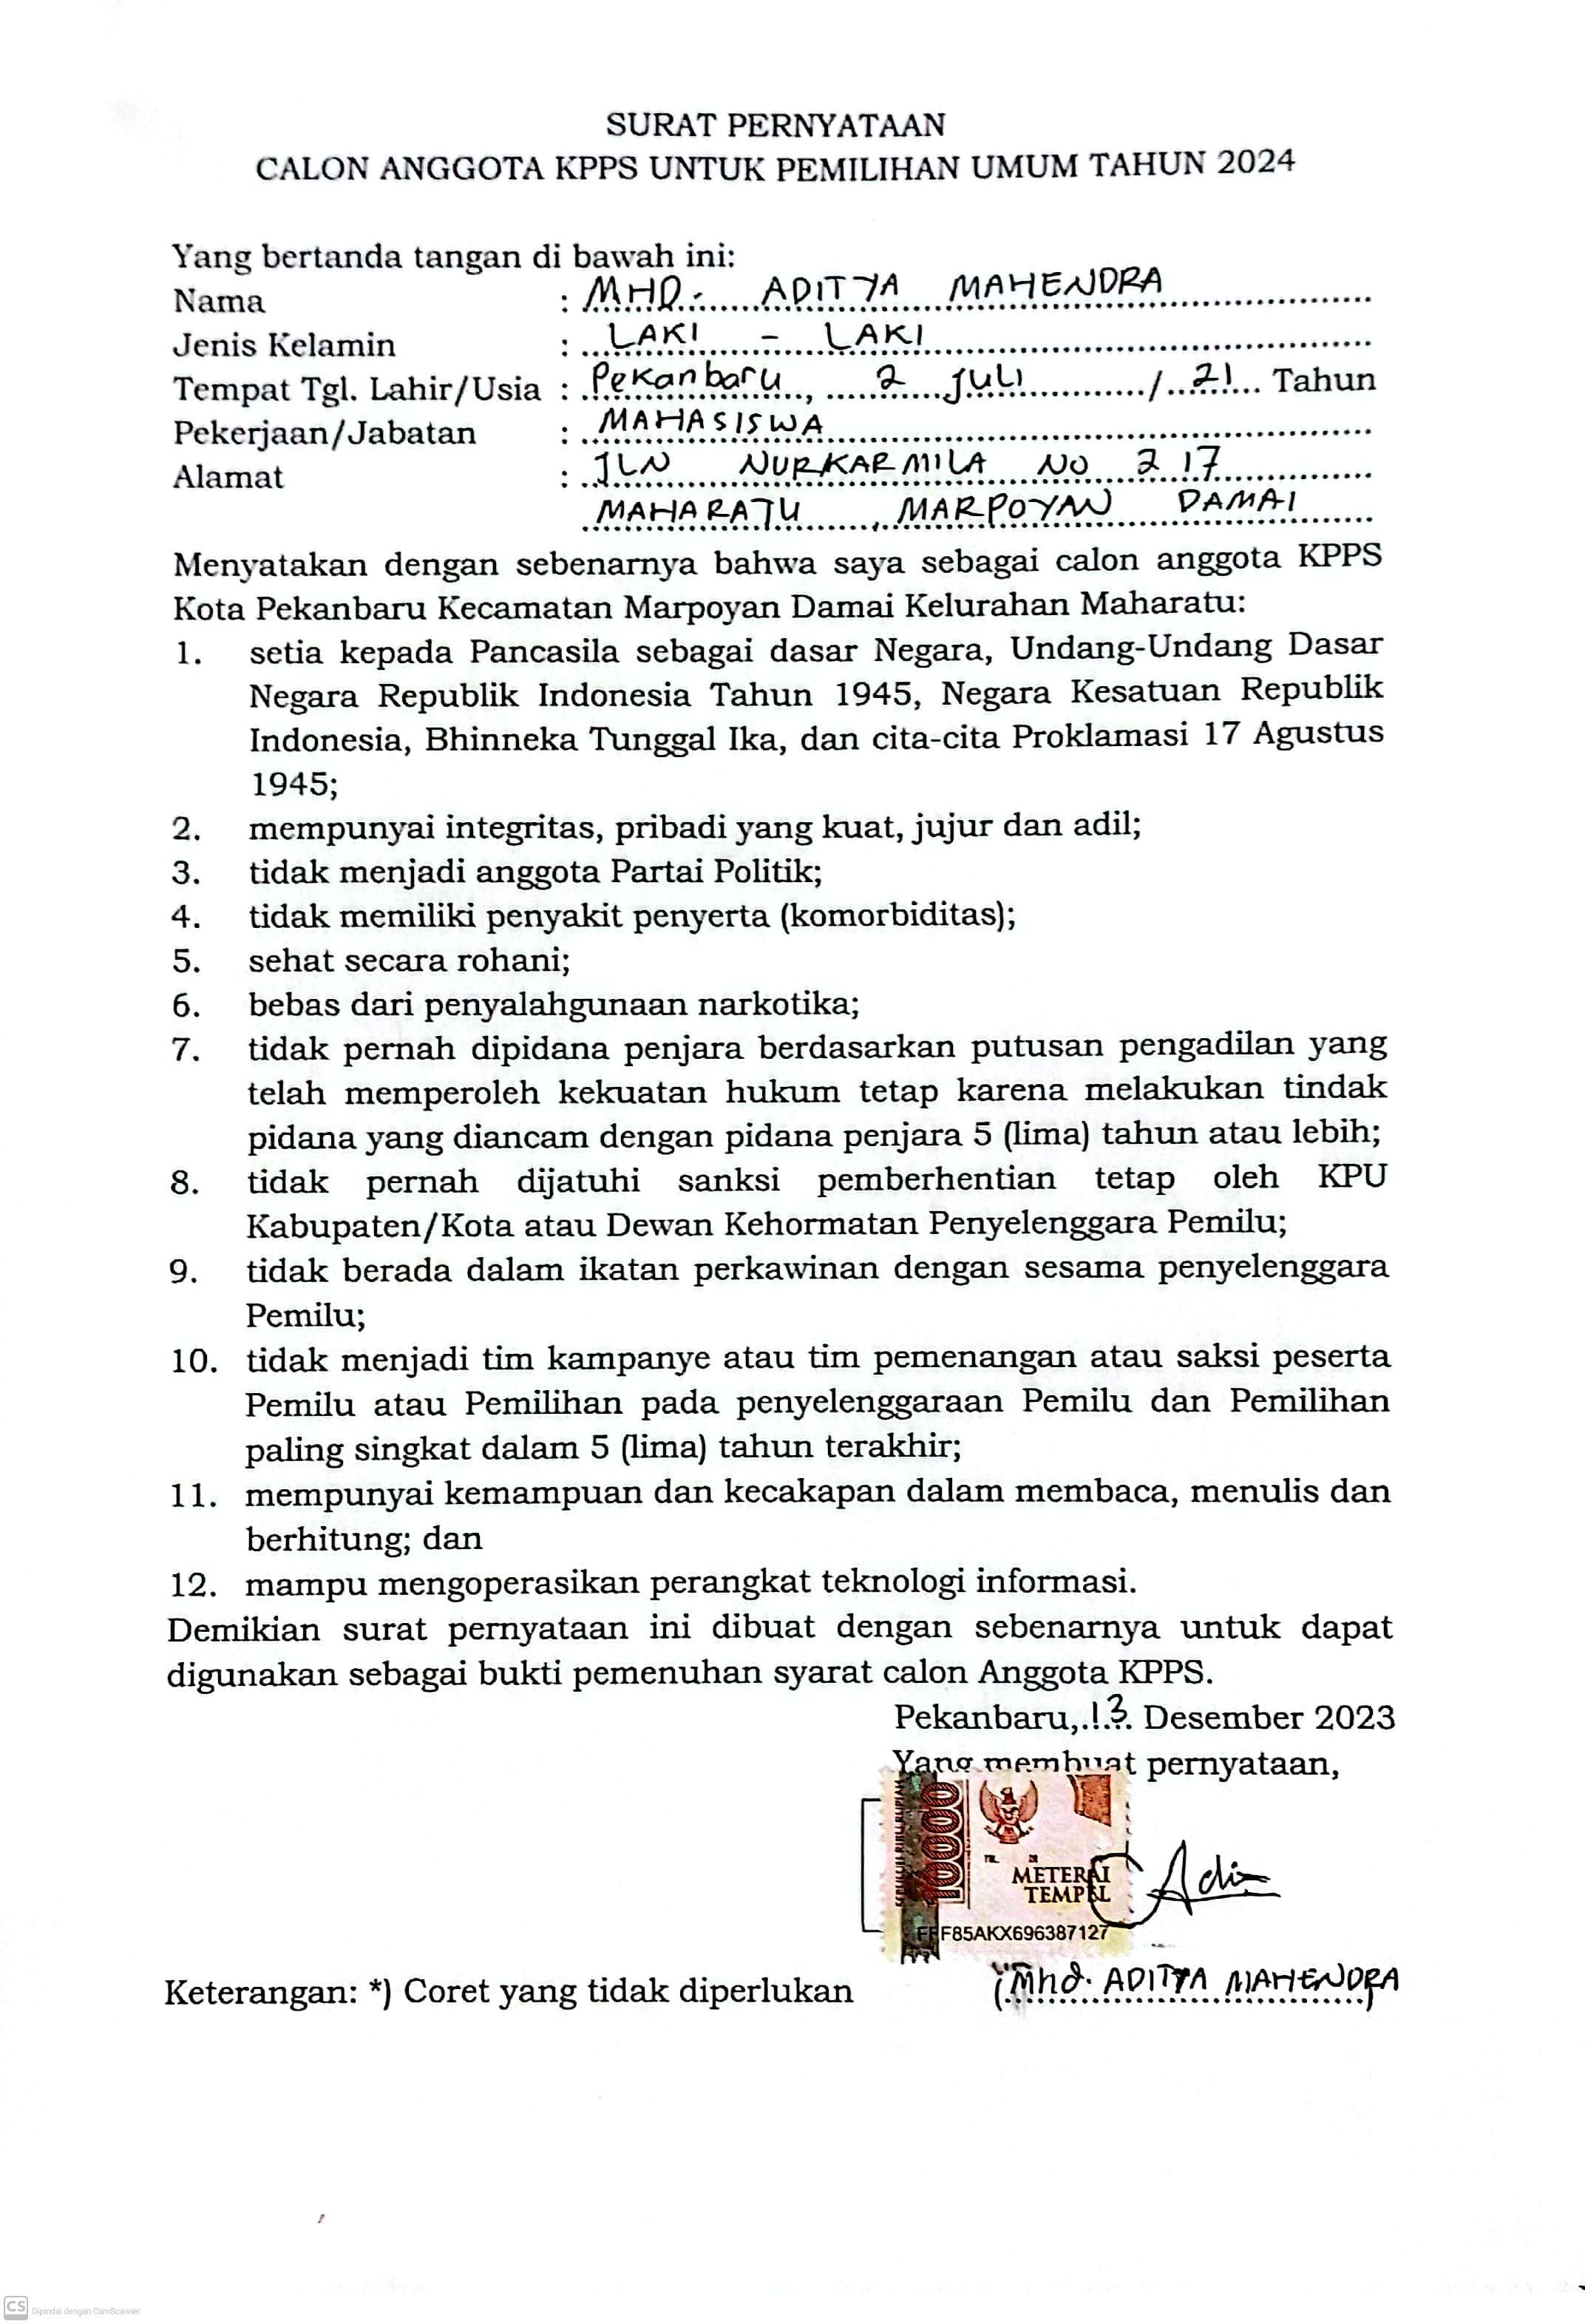 SURAT PERNYATAAN
CALON ANGGOTA KPPS UNTUK PEMILIHAN UMUM TAHUN 2024
Yang bertanda tangan di bawah ini:
Nama : MHD. ADITYA MAHENDRA
Jenis Kelamin : LAKI - LAKI
Tempat Tgl. Lahir/Usia : Pekanbaru, 2 juli / 21 Tahun
Pekerjaan/Jabatan : MAHASISWA
Alamat : JLN NURKARMILA NO 217
MAHARATU, MARPOYAN DAMAI
Menyatakan dengan sebenarnya bahwa saya sebagai calon anggota KPPS
Kota Pekanbaru Kecamatan Marpoyan Damai Kelurahan Maharatu:
1. setia kepada Pancasila sebagai dasar Negara, Undang-Undang Dasar
Negara Republik Indonesia Tahun 1945, Negara Kesatuan Republik
Indonesia, Bhinneka Tunggal Ika, dan cita-cita Proklamasi 17 Agustus
1945;
2. mempunyai integritas, pribadi yang kuat, jujur dan adil;
3. tidak menjadi anggota Partai Politik;
4. tidak memiliki penyakit penyerta (komorbiditas);
5. sehat secara rohani;
6. bebas dari penyalahgunaan narkotika;
7. tidak pernah dipidana penjara berdasarkan putusan pengadilan yang
telah memperoleh kekuatan hukum tetap karena melakukan tindak
pidana yang diancam dengan pidana penjara 5 (lima) tahun atau lebih;
8. tidak pernah dijatuhi sanksi pemberhentian tetap oleh KPU
Kabupaten/Kota atau Dewan Kehormatan Penyelenggara Pemilu;
9. tidak berada dalam ikatan perkawinan dengan sesama penyelenggara
Pemilu;
10. tidak menjadi tim kampanye atau tim pemenangan atau saksi peserta
Pemilu atau Pemilihan pada penyelenggaraan Pemilu dan Pemilihan
paling singkat dalam 5 (lima) tahun terakhir;
11. mempunyai kemampuan dan kecakapan dalam membaca, menulis dan
berhitung; dan
12. mampu mengoperasikan perangkat teknologi informasi.
Demikian surat pernyataan ini dibuat dengan sebenarnya untuk dapat
digunakan sebagai bukti pemenuhan syarat calon Anggota KPPS.
Pekanbaru, 13 Desember 2023
Yang membuat pernyataan,
10000
TGL. 20
METERAI
TEMPEL
F85AKX696387127
Adi
(Mhd. ADITYA MAHENDRA)
Keterangan: *) Coret yang tidak diperlukan
CS Dipindai dengan CamScanner